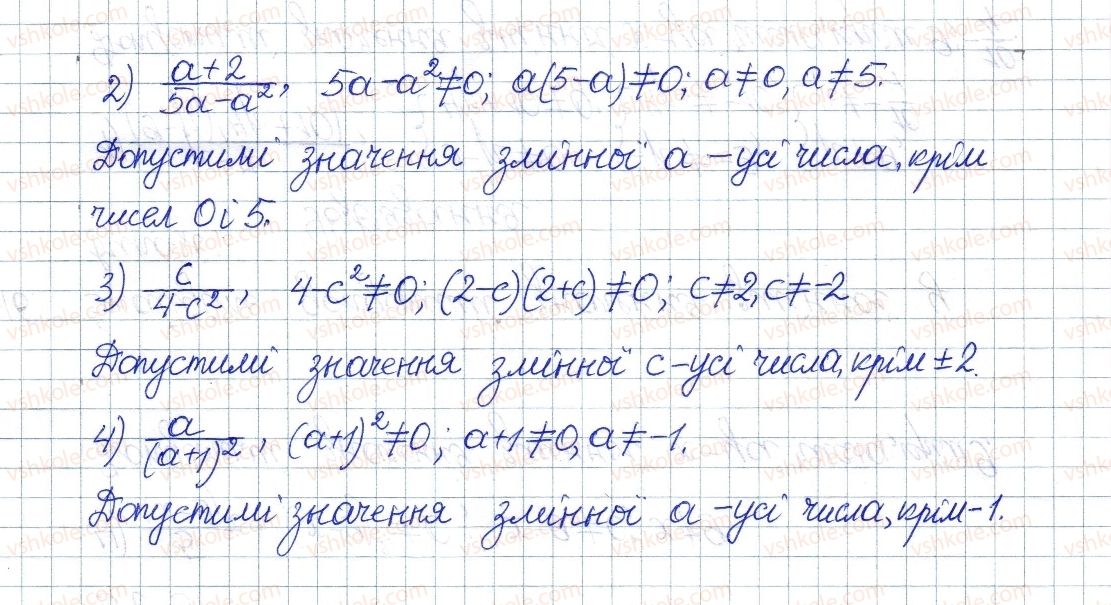 2) (a+2)/(5a-a²), 5a-a²≠0; a(5-a)≠0; a≠0, a≠5.
Допустимі значення змінної a - усі числа, крім
чисел 0 і 5.
3) c/(4-c²), 4-c²≠0; (2-c)(2+c)≠0; c≠2, c≠-2
Допустимі значення змінної c - усі числа, крім ±2.
4) a/(a+1)², (a+1)²≠0; a+1≠0, a≠-1.
Допустимі значення змінної a - усі числа, крім -1.
vshkole.com